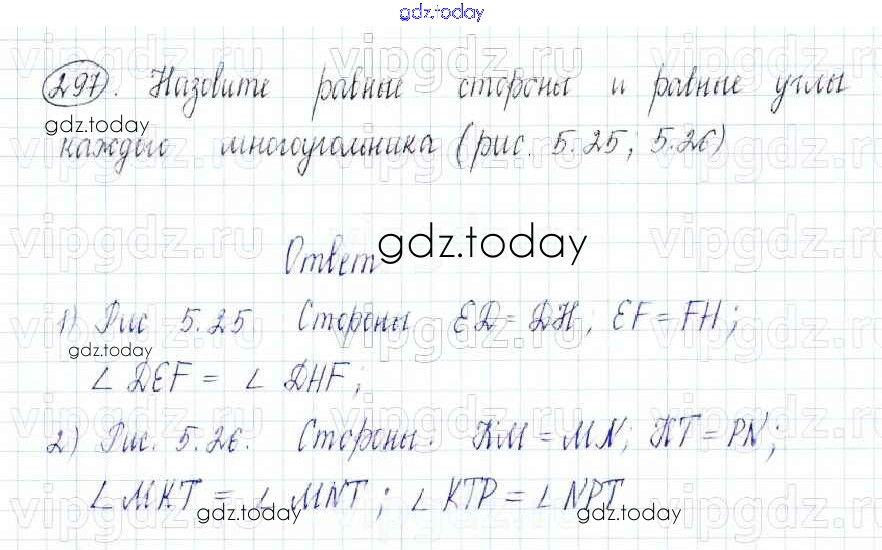 gdz.today
297. Назовите равные стороны и равные углы
gdz.today
каждого многоугольника (рис. 5.25; 5.26)
Ответ gdz.today
1) Рис 5.25. Стороны ED = DH; EF = FH;
gdz.today
∠ DEF = ∠ DHF;
2) Рис. 5.26. Стороны: KM = MN; KT = PN;
∠ MKT = ∠ MNT; ∠ KTP = ∠ NPT
gdz.today gdz.today